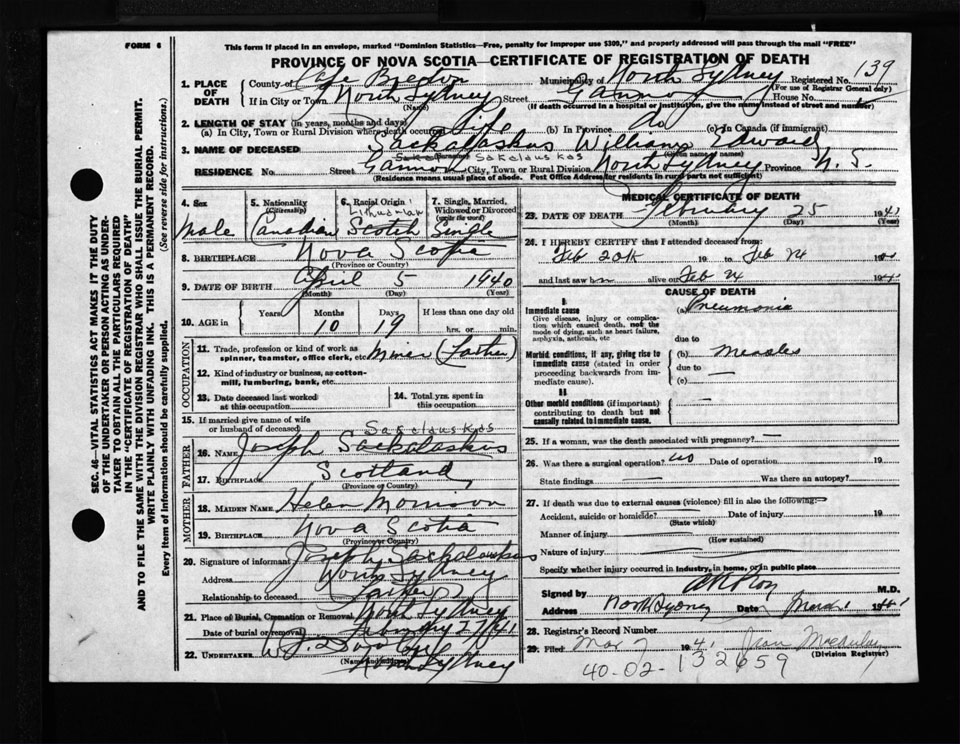 FORM 6
This form if placed in an envelope, marked "Dominion Statistics—Free, penalty for improper use $300," and properly addressed will pass through the mail "FREE"
PROVINCE OF NOVA SCOTIA—CERTIFICATE OF REGISTRATION OF DEATH
SEC. 46—VITAL STATISTICS ACT MAKES IT THE DUTY
OF THE UNDERTAKER OR PERSON ACTING AS UNDER-
TAKER TO OBTAIN ALL THE PARTICULARS REQUIRED
IN THE "CERTIFICATE OF REGISTRATION OF DEATH"
AND TO FILE THE SAME WITH THE DIVISION REGISTRAR WHO SHALL ISSUE THE BURIAL PERMIT.
WRITE PLAINLY WITH UNFADING INK. THIS IS A PERMANENT RECORD.
Every item of information should be carefully supplied. (See reverse side for instructions.)
1. PLACE OF DEATH
County of Cape Breton Municipality of North Sydney Registered No. 139
(For use of Registrar General only)
If in City or Town North Sydney Street House No.
(Name) (If death occurred in a hospital or institution, give the name instead of street and number)
2. LENGTH OF STAY (in years, months and days)
(a) In City, Town or Rural Division where death occurred life (b) In Province do (c) In Canada (if immigrant)
3. NAME OF DECEASED Sackalaskus William Edward
Sakalauskas (Given name or names)
RESIDENCE No. Street City, Town or Rural Division North Sydney Province N. S.
(Residence means usual place of abode. Post Office Address for residents in rural parts not sufficient)
4. Sex
Male
5. Nationality (Citizenship)
Canadian
6. Racial Origin
Lithuanian
Scotch
7. Single, Married, Widowed or Divorced (write the word)
Single
8. BIRTHPLACE Nova Scotia
(Province or Country)
9. DATE OF BIRTH April 5 1940
(Month) (Day) (Year)
10. AGE in Years Months Days If less than one day old
10 19 hrs. or min.
OCCUPATION
11. Trade, profession or kind of work as spinner, teamster, office clerk, etc. Miner (Father)
12. Kind of industry or business, as cotton-mill, lumbering, bank, etc.
13. Date deceased last worked at this occupation
14. Total yrs. spent in this occupation
15. If married give name of wife or husband of deceased
Sakelauskos
FATHER
16. Name Joseph Sackalaskus
17. Birthplace Scotland
(Province or Country)
MOTHER
18. MAIDEN NAME Helen Morrison
19. BIRTHPLACE Nova Scotia
(Province or Country)
20. Signature of informant Joseph Sackalauskus
Address North Sydney
Relationship to deceased Father
21. Place of Burial, Cremation or Removal North Sydney
Date of burial or removal February 27/41
22. UNDERTAKER
(Name and address)
North Sydney
MEDICAL CERTIFICATE OF DEATH
23. DATE OF DEATH February 25 1941
(Month) (Day) (Year)
24. I HEREBY CERTIFY that I attended deceased from:
Feb 20th 19 to Feb 24 1941
and last saw him alive on Feb 24 1941
CAUSE OF DEATH
I
Immediate cause (a) Pneumonia
Give disease, injury or complication which caused death, not the mode of dying, such as heart failure, asphyxia, asthenia, etc
due to
Morbid conditions, if any, giving rise to immediate cause (stated in order proceeding backwards from immediate cause).
(b) Measles
due to —
(c)
II
Other morbid conditions (if important) contributing to death but not causally related to immediate cause. —
25. If a woman, was the death associated with pregnancy? —
26. Was there a surgical operation? no Date of operation 19
State findings Was there an autopsy?
27. If death was due to external causes (violence) fill in also the following:
Accident, suicide or homicide? Date of injury 19
(State which)
Manner of injury
(How sustained)
Nature of injury
Specify whether injury occurred in industry, in home, or in public place
Signed by M.D.
Address North Sydney Date March 1 1941
28. Registrar's Record Number
29. Filed Mar 1941
(Division Registrar)
40-02-132659